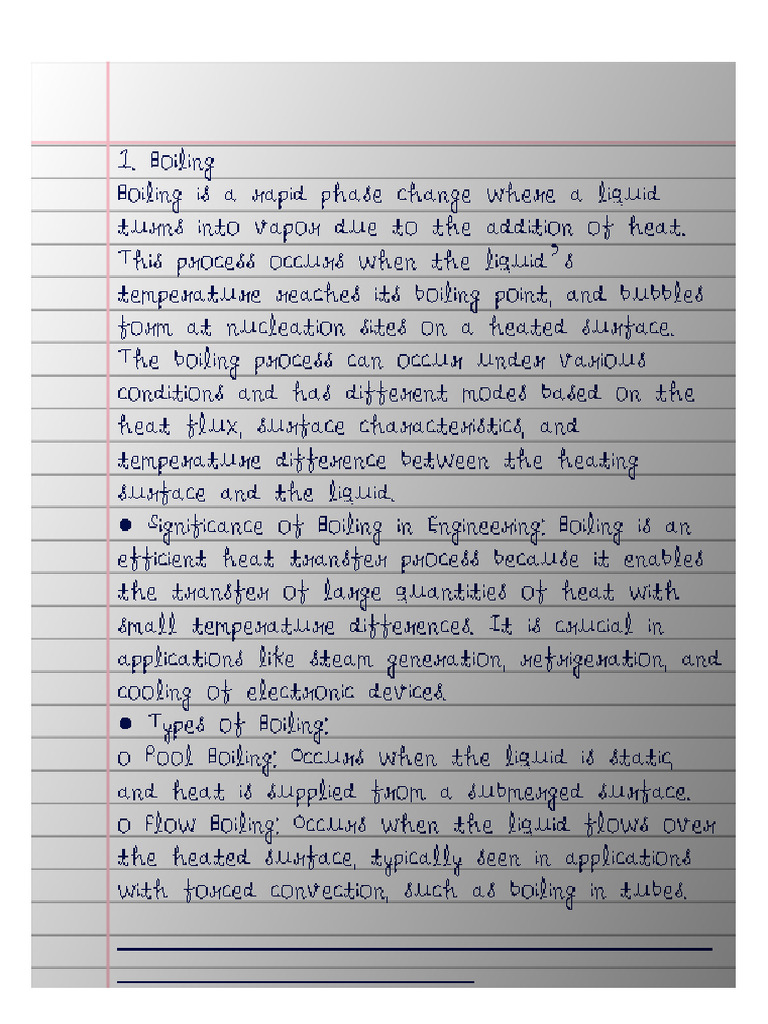 1. Boiling
Boiling is a rapid phase change where a liquid
turns into vapor due to the addition of heat.
This process occurs when the liquid's
temperature reaches its boiling point, and bubbles
form at nucleation sites on a heated surface.
The boiling process can occur under various
conditions and has different modes based on the
heat flux, surface characteristics, and
temperature difference between the heating
surface and the liquid.
● Significance of Boiling in Engineering: Boiling is an
efficient heat transfer process because it enables
the transfer of large quantities of heat with
small temperature differences. It is crucial in
applications like steam generation, refrigeration, and
cooling of electronic devices.
● Types of Boiling:
o Pool Boiling: Occurs when the liquid is static,
and heat is supplied from a submerged surface.
o Flow Boiling: Occurs when the liquid flows over
the heated surface, typically seen in applications
with forced convection, such as boiling in tubes.